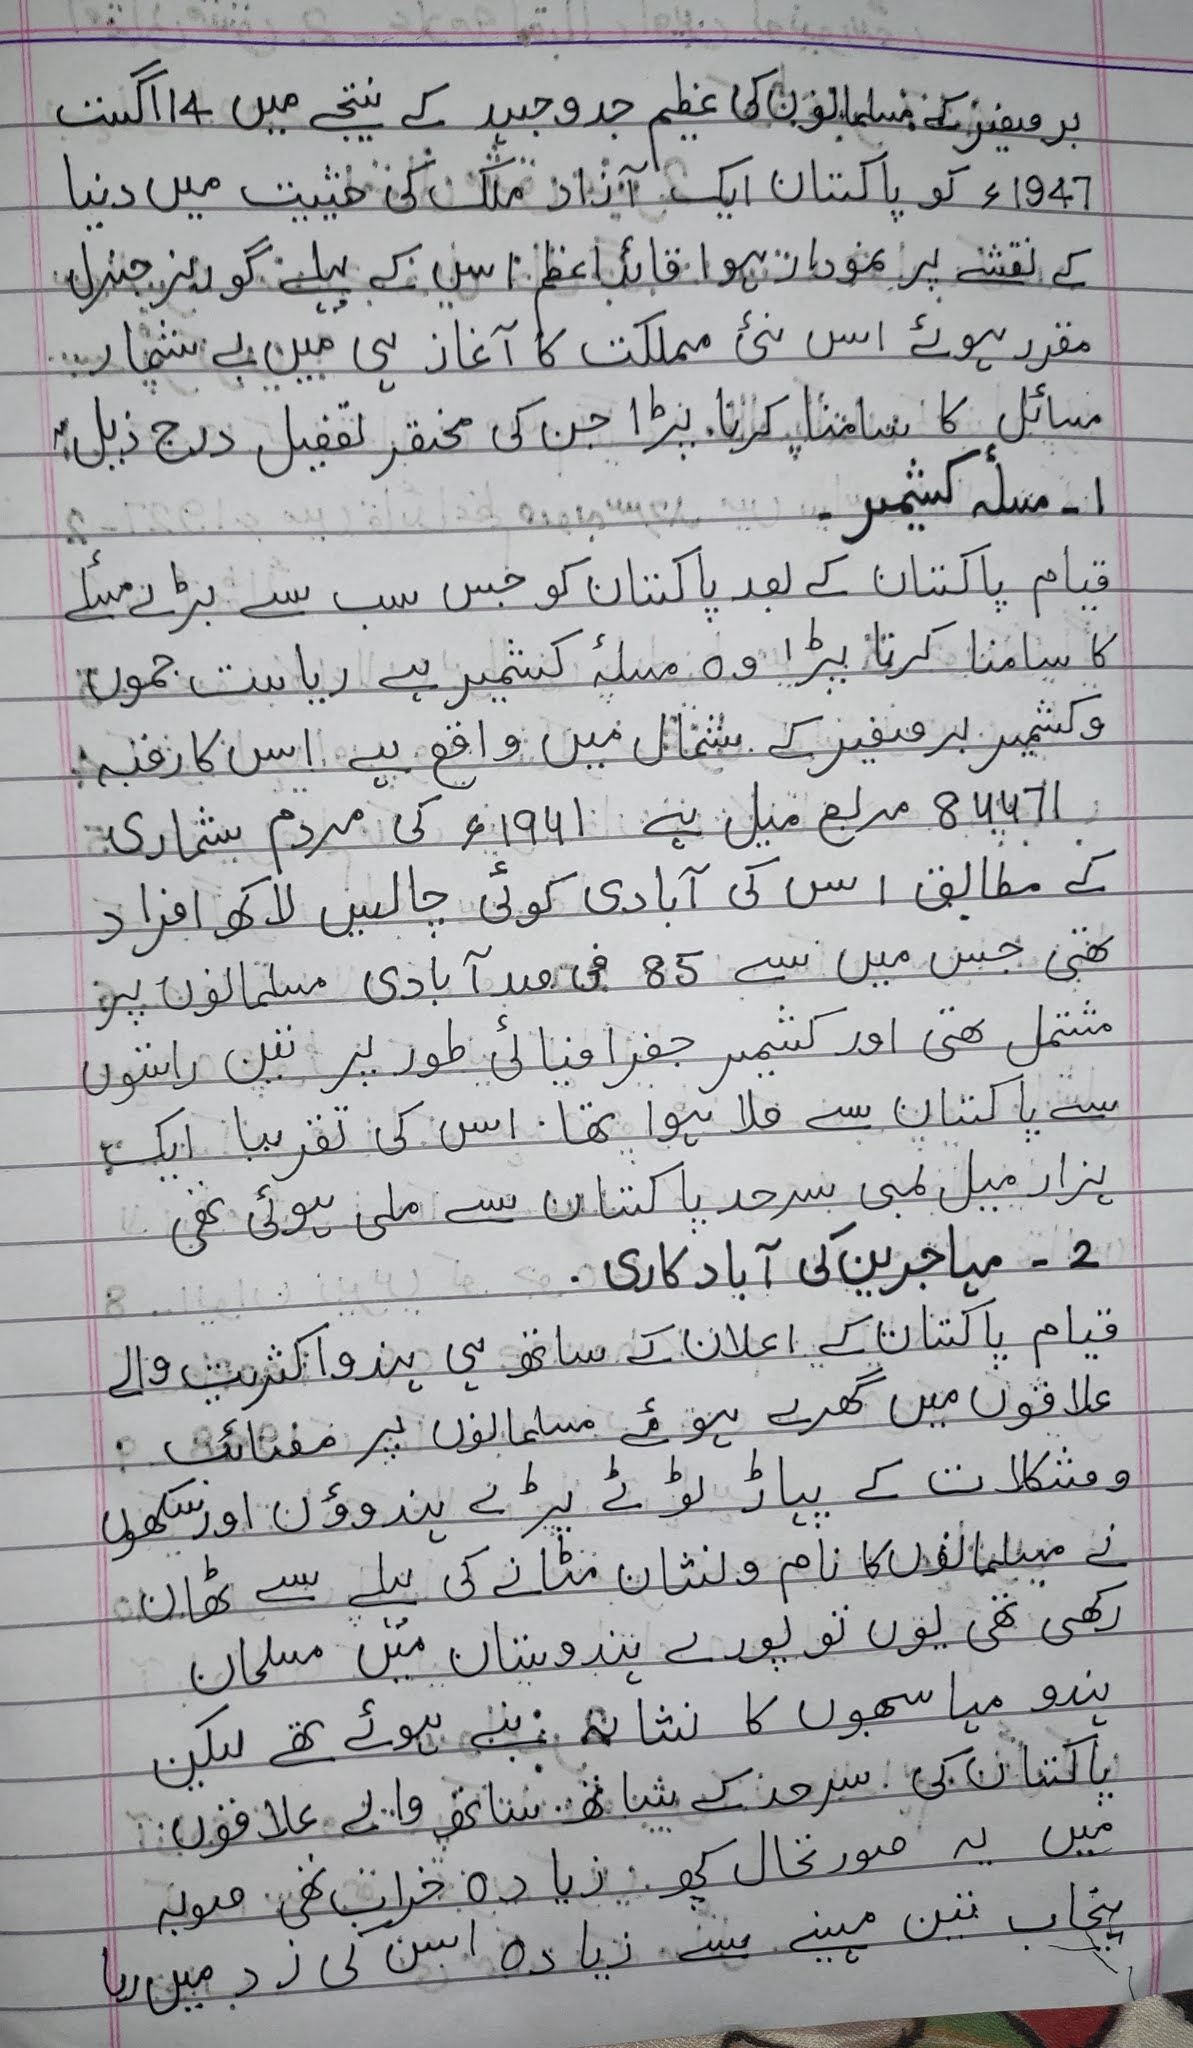 برصغیر کے مسلمانوں کی عظیم جدوجہد کے نتیجے میں 14 اگست
1947ء کو پاکستان ایک آزاد ملک کی حیثیت میں دنیا
کے نقشے پر نمودار ہوا قائداعظم اس کے پہلے گورنر جنرل
مقرر ہوئے اس نئی مملکت کا آغاز ہی میں بے شمار
مسائل کا سامنا کرنا پڑا جن کی مختصر تفصیل درج ذیل
1 - مسلۂ کشمیر -
قیام پاکستان کے بعد پاکستان کو جس سب سے بڑے مسئلے
کا سامنا کرنا پڑا وہ مسلۂ کشمیر ہے ریاست جموں
وکشمیر برصغیر کے شمال میں واقع ہے اس کا رقبہ
84471 مربع میل ہے 1941ء کی مردم شماری
کے مطابق اس کی آبادی کوئی چالیس لاکھ افراد
تھی جس میں سے 85 فی صد آبادی مسلمانوں پر
مشتمل تھی اور کشمیر جغرافیائی طور پر تین راستوں
سے پاکستان سے ملا ہوا تھا. اس کی تقریبا ایک
ہزار میل لمبی سرحد پاکستان سے ملی ہوئی تھی
2 - مہاجرین کی آبادکاری .
قیام پاکستان کے اعلان کے ساتھ ہی ہندو اکثریت والے
علاقوں میں گھرے ہوئے مسلمانوں پر مصائب
ومشکلات کے پہاڑ ٹوٹے پڑے ہندوؤں اور سکھوں
نے مسلمانوں کا نام ونشان مٹانے کی پہلے سے ٹھان
رکھی تھی یوں تو پورے ہندوستان میں مسلمان
ہندو مہاسبھوں کا نشانہ بنے ہوئے تھے لیکن
پاکستان کی سرحد کے ساتھ ساتھ والے علاقوں
میں یہ صورتحال کچھ زیادہ خراب تھی صوبہ
پنجاب تین مہینے سے زیادہ اس کی زد میں رہا